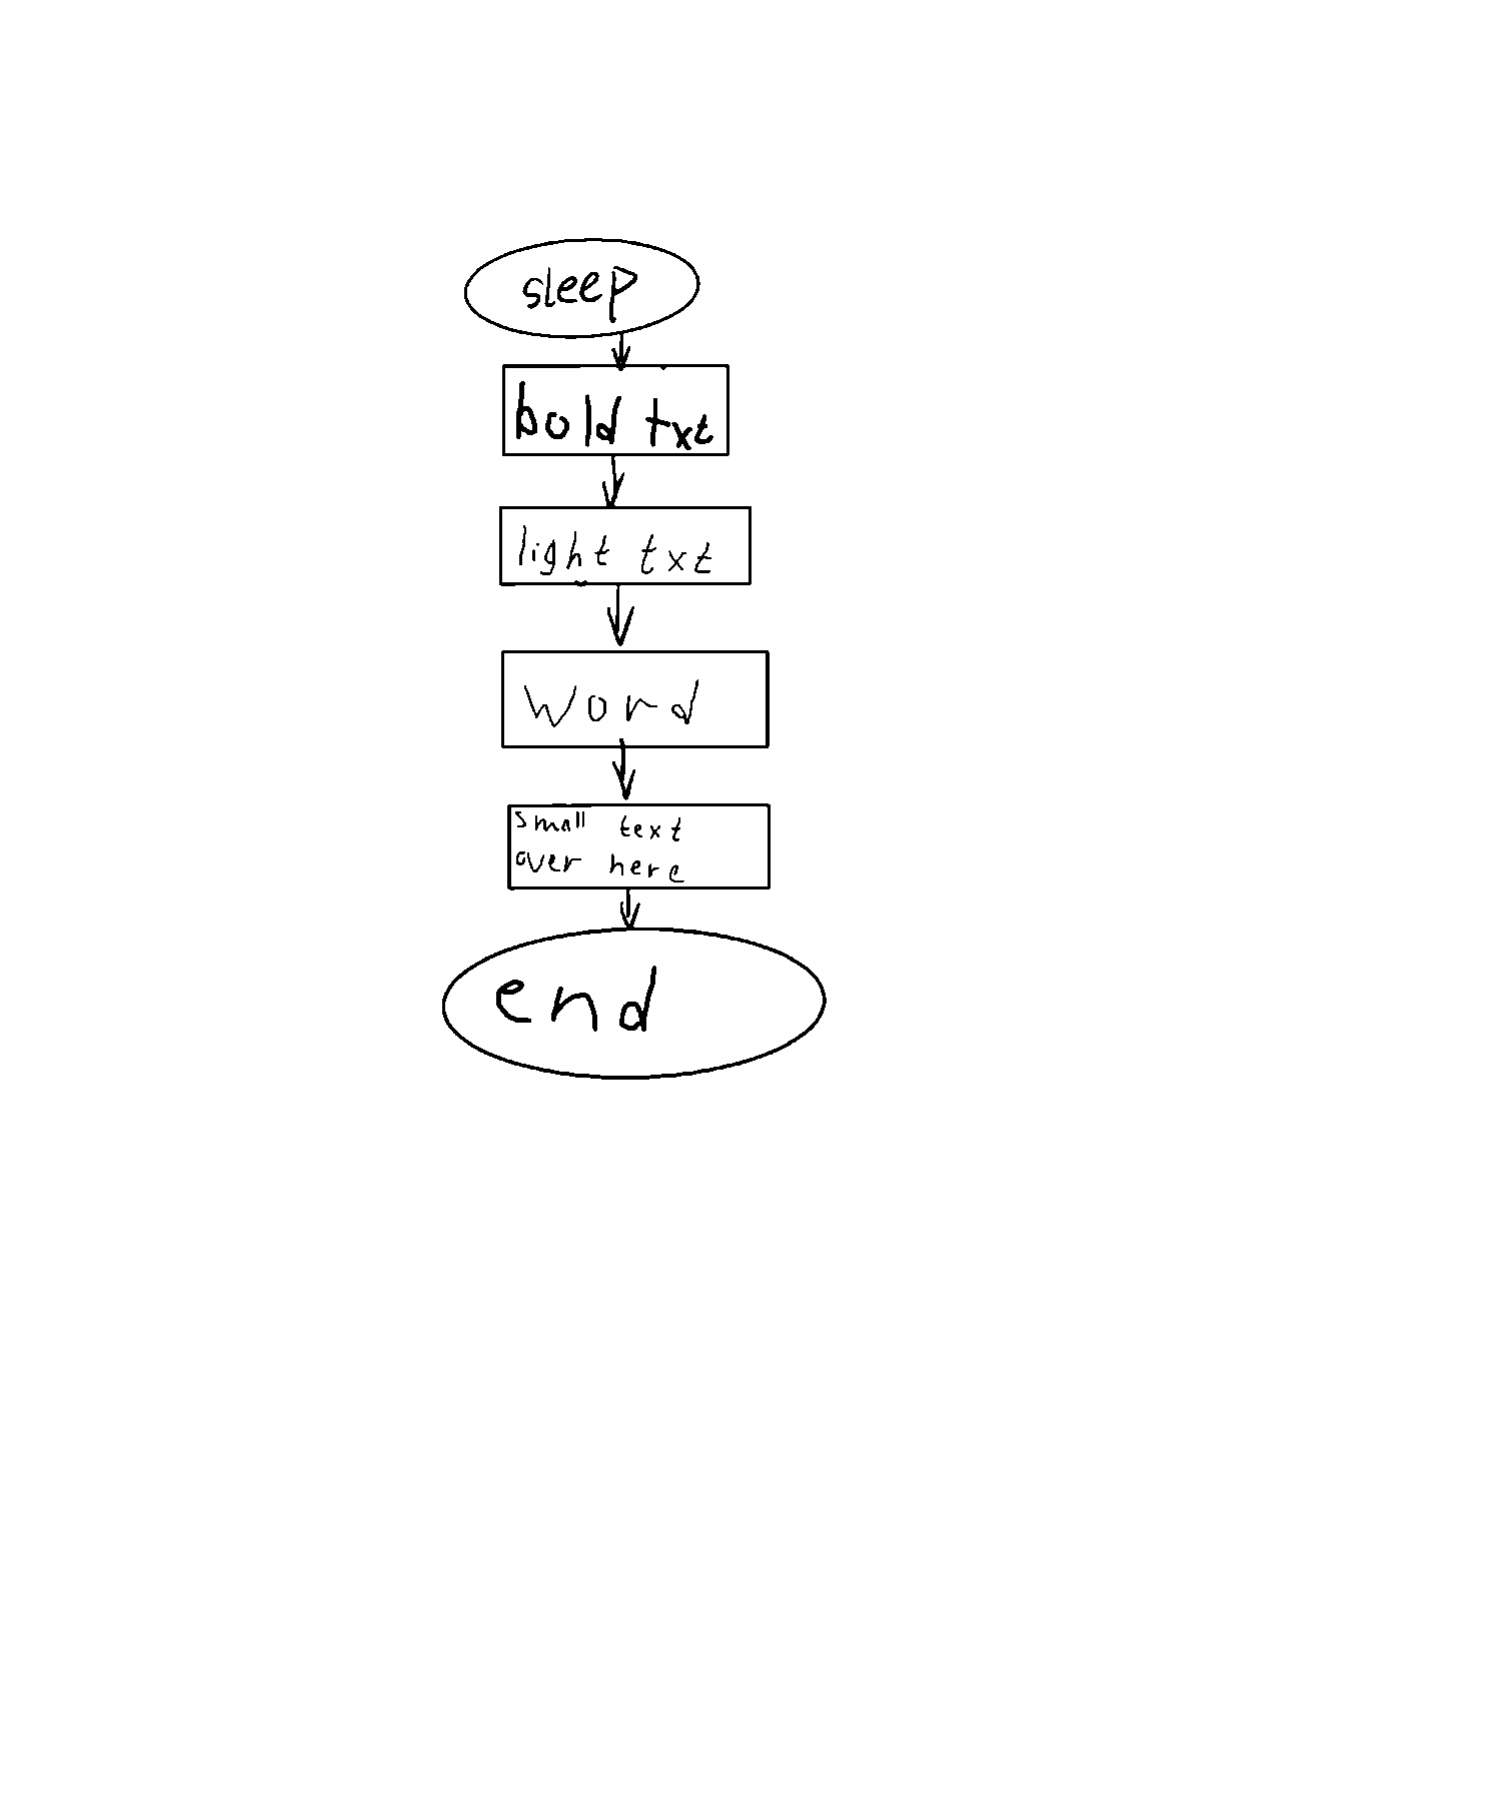 sleep
bold txt
light txt
word
small text
over here
end